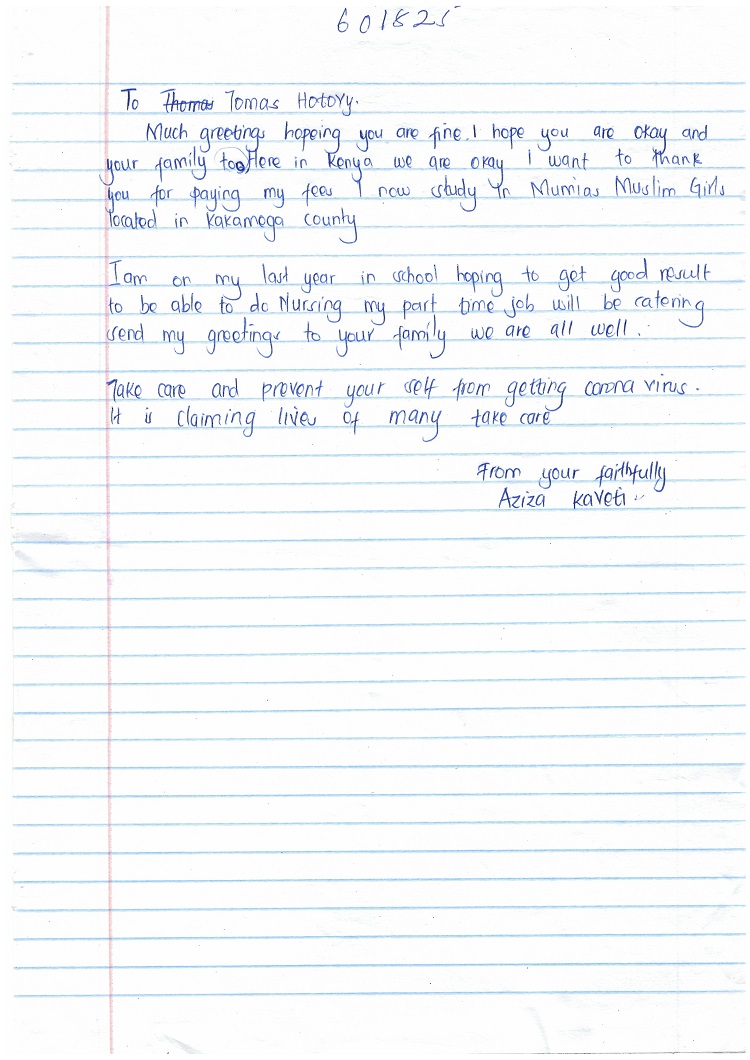 601825
To Thomas Tomas Hotovy.
Much greetings hopeing you are fine. I hope you are okay and
your family too Here in Kenya we are okay I want to thank
you for paying my fees I now study in Mumias Muslim Girls
located in Kakamega county
I am on my last year in school hoping to get good result
to be able to do Nursing my part time job will be catering
send my greetings to your family we are all well.
Take care and prevent your self from getting corona virus.
It is claiming lives of many take care
From your faithfully
Aziza Kaveti